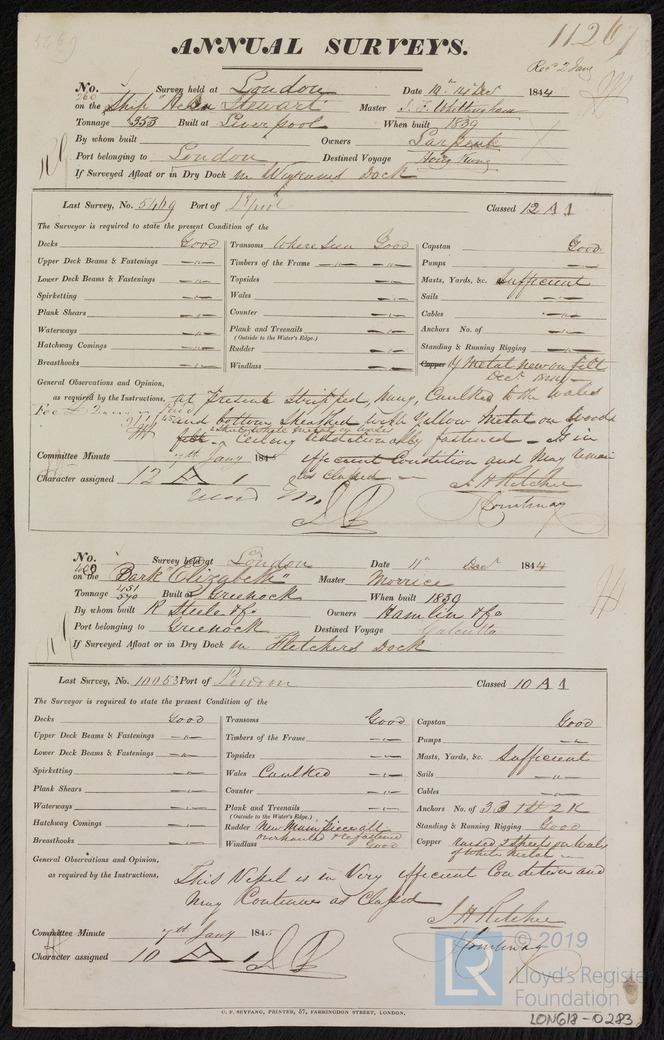 5469
ANNUAL SURVEYS.
11267
Recd 2 Jany
No. 260 Survey held at London Date 1844
on the Ship "Helen Stewart" Master J. F. Whittingham
Tonnage 353 Built at Liverpool When built 1839
By whom built Owners Larpent
Port belonging to London Destined Voyage Hong Kong
If Surveyed Afloat or in Dry Dock in Wigrams Dock
Last Survey, No. 5469 Port of Lpool Classed 12 A 1
The Surveyor is required to state the present Condition of the
Decks Good Transoms Where Seen Good Capstan Good
Upper Deck Beams & Fastenings -"- Timbers of the Frame -"- -"- Pumps -"-
Lower Deck Beams & Fastenings -"- Topsides -"- Masts, Yards, &c. Sufficient
Spirketting -"- Wales -"- Sails -"-
Plank Shears -"- Counter -"- Cables -"-
Waterways -"- Plank and Treenails -"- Anchors No. of -"-
(Outside to the Water's Edge.)
Hatchway Comings -"- Rudder -"- Standing & Running Rigging -"-
Breasthooks -"- Windlass -"- Copper Y Metal new on felt
Decr 1844
General Observations and Opinion,
as required by the Instructions, at present stripped, Caulked to the wales
and bottom Sheathed with Yellow Metal on
felt - ceiling additionally fastened - is in
Committee Minute 7th Jany 1845 efficient Condition and May remain
Character assigned 12 A 1 as Classed.
No. 400 Survey held at London Date 11th Decr 1844
on the Bark "Elizabeth" Master Morrice
Tonnage 451 540 Built at Greenock When built 1839
By whom built R Steele & Co Owners Hamlin & Co
Port belonging to Greenock Destined Voyage Calcutta
If Surveyed Afloat or in Dry Dock in Fletchers Dock
Last Survey, No. 10053 Port of London Classed 10 A 1
The Surveyor is required to state the present Condition of the
Decks Good Transoms Good Capstan Good
Upper Deck Beams & Fastenings -"- Timbers of the Frame -"- Pumps -"-
Lower Deck Beams & Fastenings -"- Topsides -"- Masts, Yards, &c. Sufficient
Spirketting -"- Wales Caulked -"- Sails -"-
Plank Shears -"- Counter -"- Cables -"-
Waterways -"- Plank and Treenails -"- Anchors No. of 3 B 1 St 2 K
(Outside to the Water's Edge.)
Hatchway Comings -"- Rudder New Main piece all Standing & Running Rigging Good
overhauld & refastened
Breasthooks -"- Windlass Good Copper raised 2 Sheets on Wales
of White Metal
General Observations and Opinion,
as required by the Instructions, This Vessel is in Very efficient Condition and
May Continue as Classed
Committee Minute 7th Jany 1845
Character assigned 10 A 1
C. F. SEYFANG, PRINTER, 57, FARRINGDON STREET, LONDON.
LR
© 2019
Lloyd's Register
Foundation
LON618-0283